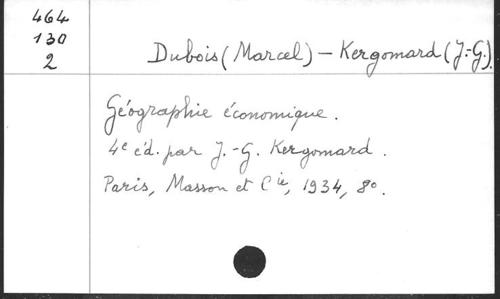 464
130
2
Dubois (Marcel) — Kergomard (J.-G).
Géographie économique.
4e éd. par J.-G. Kergomard.
Paris, Masson et Cie, 1934, 8o.